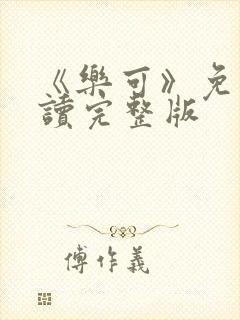 《樂可》免
讀完整版
傅作義